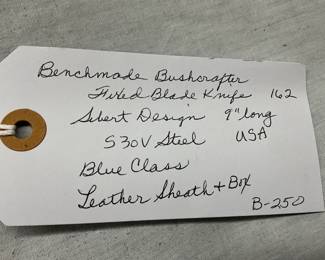 Benchmade Bushcrafter
Fixed Blade Knife 162
Sibert Design 9" long
S30V Steel USA
Blue Class
Leather Sheath + Box
B-250